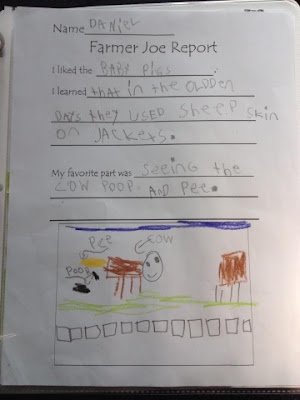 Name DANieL
Farmer Joe Report
I liked the BABY Pigs.
I learned that in the OLDDEN
DAYS they USED Sheep skin
on JACKets.
My favorite part was seeing the
COW POOP AND Pee.
Pee COW
POOP